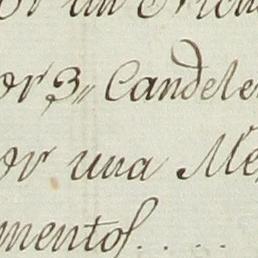 or un
or 3,, Candele
or una Me
mentos....